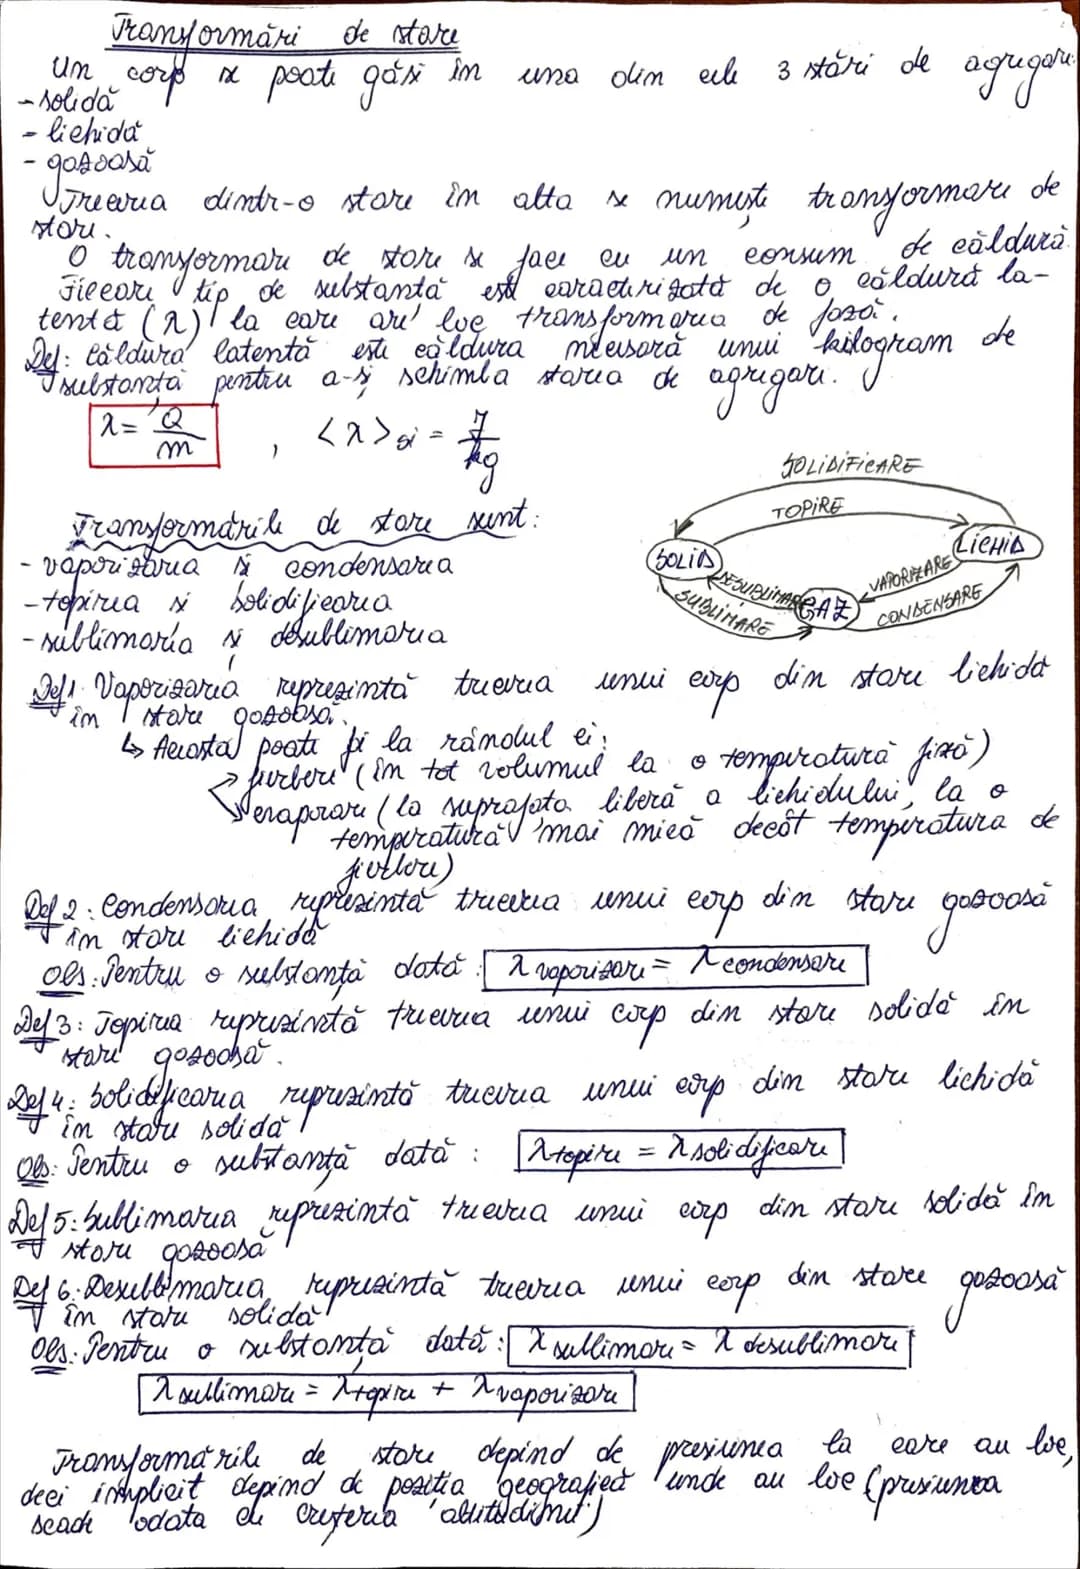 Transformări de stare
Un corp se poate găsi în una din cele 3 stări de agregare:
- solidă
- lichidă
- gazoasă
Trecerea dintr-o stare în alta se numește transformare de
stare.
O transformare de stare se face cu un consum de căldură.
Fiecare tip de substanță este caracterizată de o căldură la-
tentă (λ) la care are loc transformarea de fază.
Def: Căldura latentă este căldura necesară unui kilogram de
substanță pentru a-și schimba starea de agregare.
λ = Q/m , <λ>SI = J/kg
SOLIDIFICARE
TOPIRE
SOLID
LICHID
DESUBLIMARE
GAZ
VAPORIZARE
SUBLIMARE
CONDENSARE
Transformările de stare sunt:
- vaporizarea și condensarea
- topirea și solidificarea
- sublimarea și desublimarea
Def 1: Vaporizarea reprezintă trecerea unui corp din stare lichidă
în stare gazoasă.
↳ Aceasta poate fi la rândul ei:
→ fierbere (în tot volumul la o temperatură fixă)
↘ evaporare (la suprafața liberă a lichidului, la o
temperatură mai mică decât temperatura de
fierbere)
Def 2: Condensarea reprezintă trecerea unui corp din stare gazoasă
în stare lichidă
Obs: Pentru o substanță dată: λ vaporizare = λ condensare
Def 3: Topirea reprezintă trecerea unui corp din stare solidă în
stare gazoasă.
Def 4: Solidificarea reprezintă trecerea unui corp din stare lichidă
în stare solidă
Obs: Pentru o substanță dată: λ topire = λ solidificare
Def 5: Sublimarea reprezintă trecerea unui corp din stare solidă în
stare gazoasă
Def 6: Desublimarea reprezintă trecerea unui corp din stare gazoasă
în stare solidă
Obs: Pentru o substanță dată: λ sublimare = λ desublimare
λ sublimare = λ topire + λ vaporizare
Transformările de stare depind de presiunea la care au loc,
deci implicit depind de poziția geografică unde au loc (presiunea
scade odată cu creșterea altitudinii)